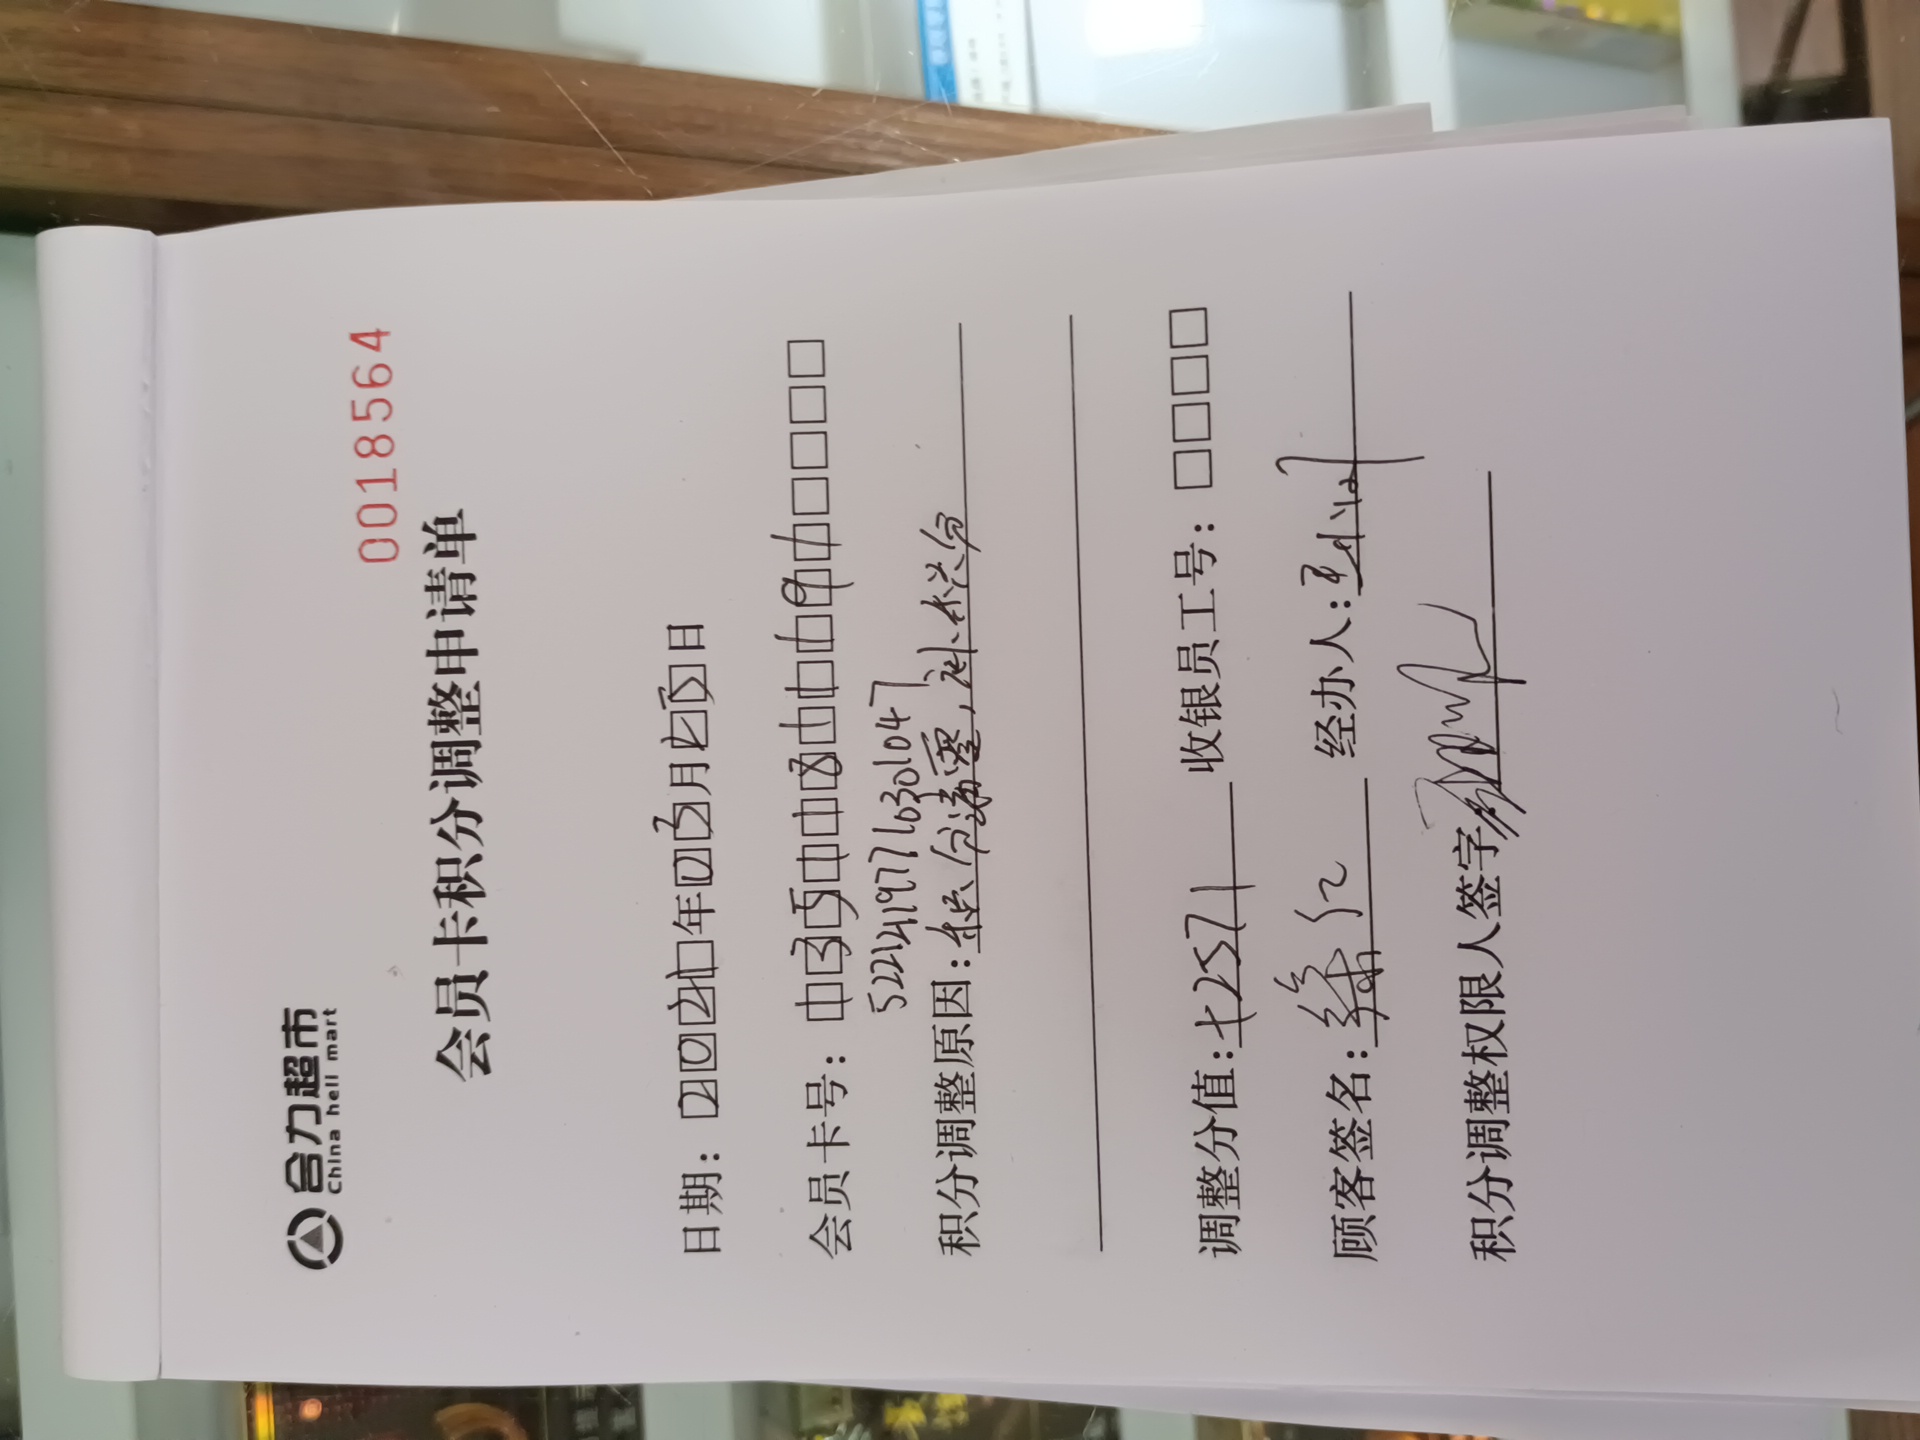 合力超市
China hell mart
0018564
会员卡积分调整申请单
日期：2021年03月25日
会员卡号：13511181191
5221211977110301047
积分调整原因：积分清零，补积分
调整分值：+2571 收银员工号：
顾客签名： 经办人：
积分调整权限人签字